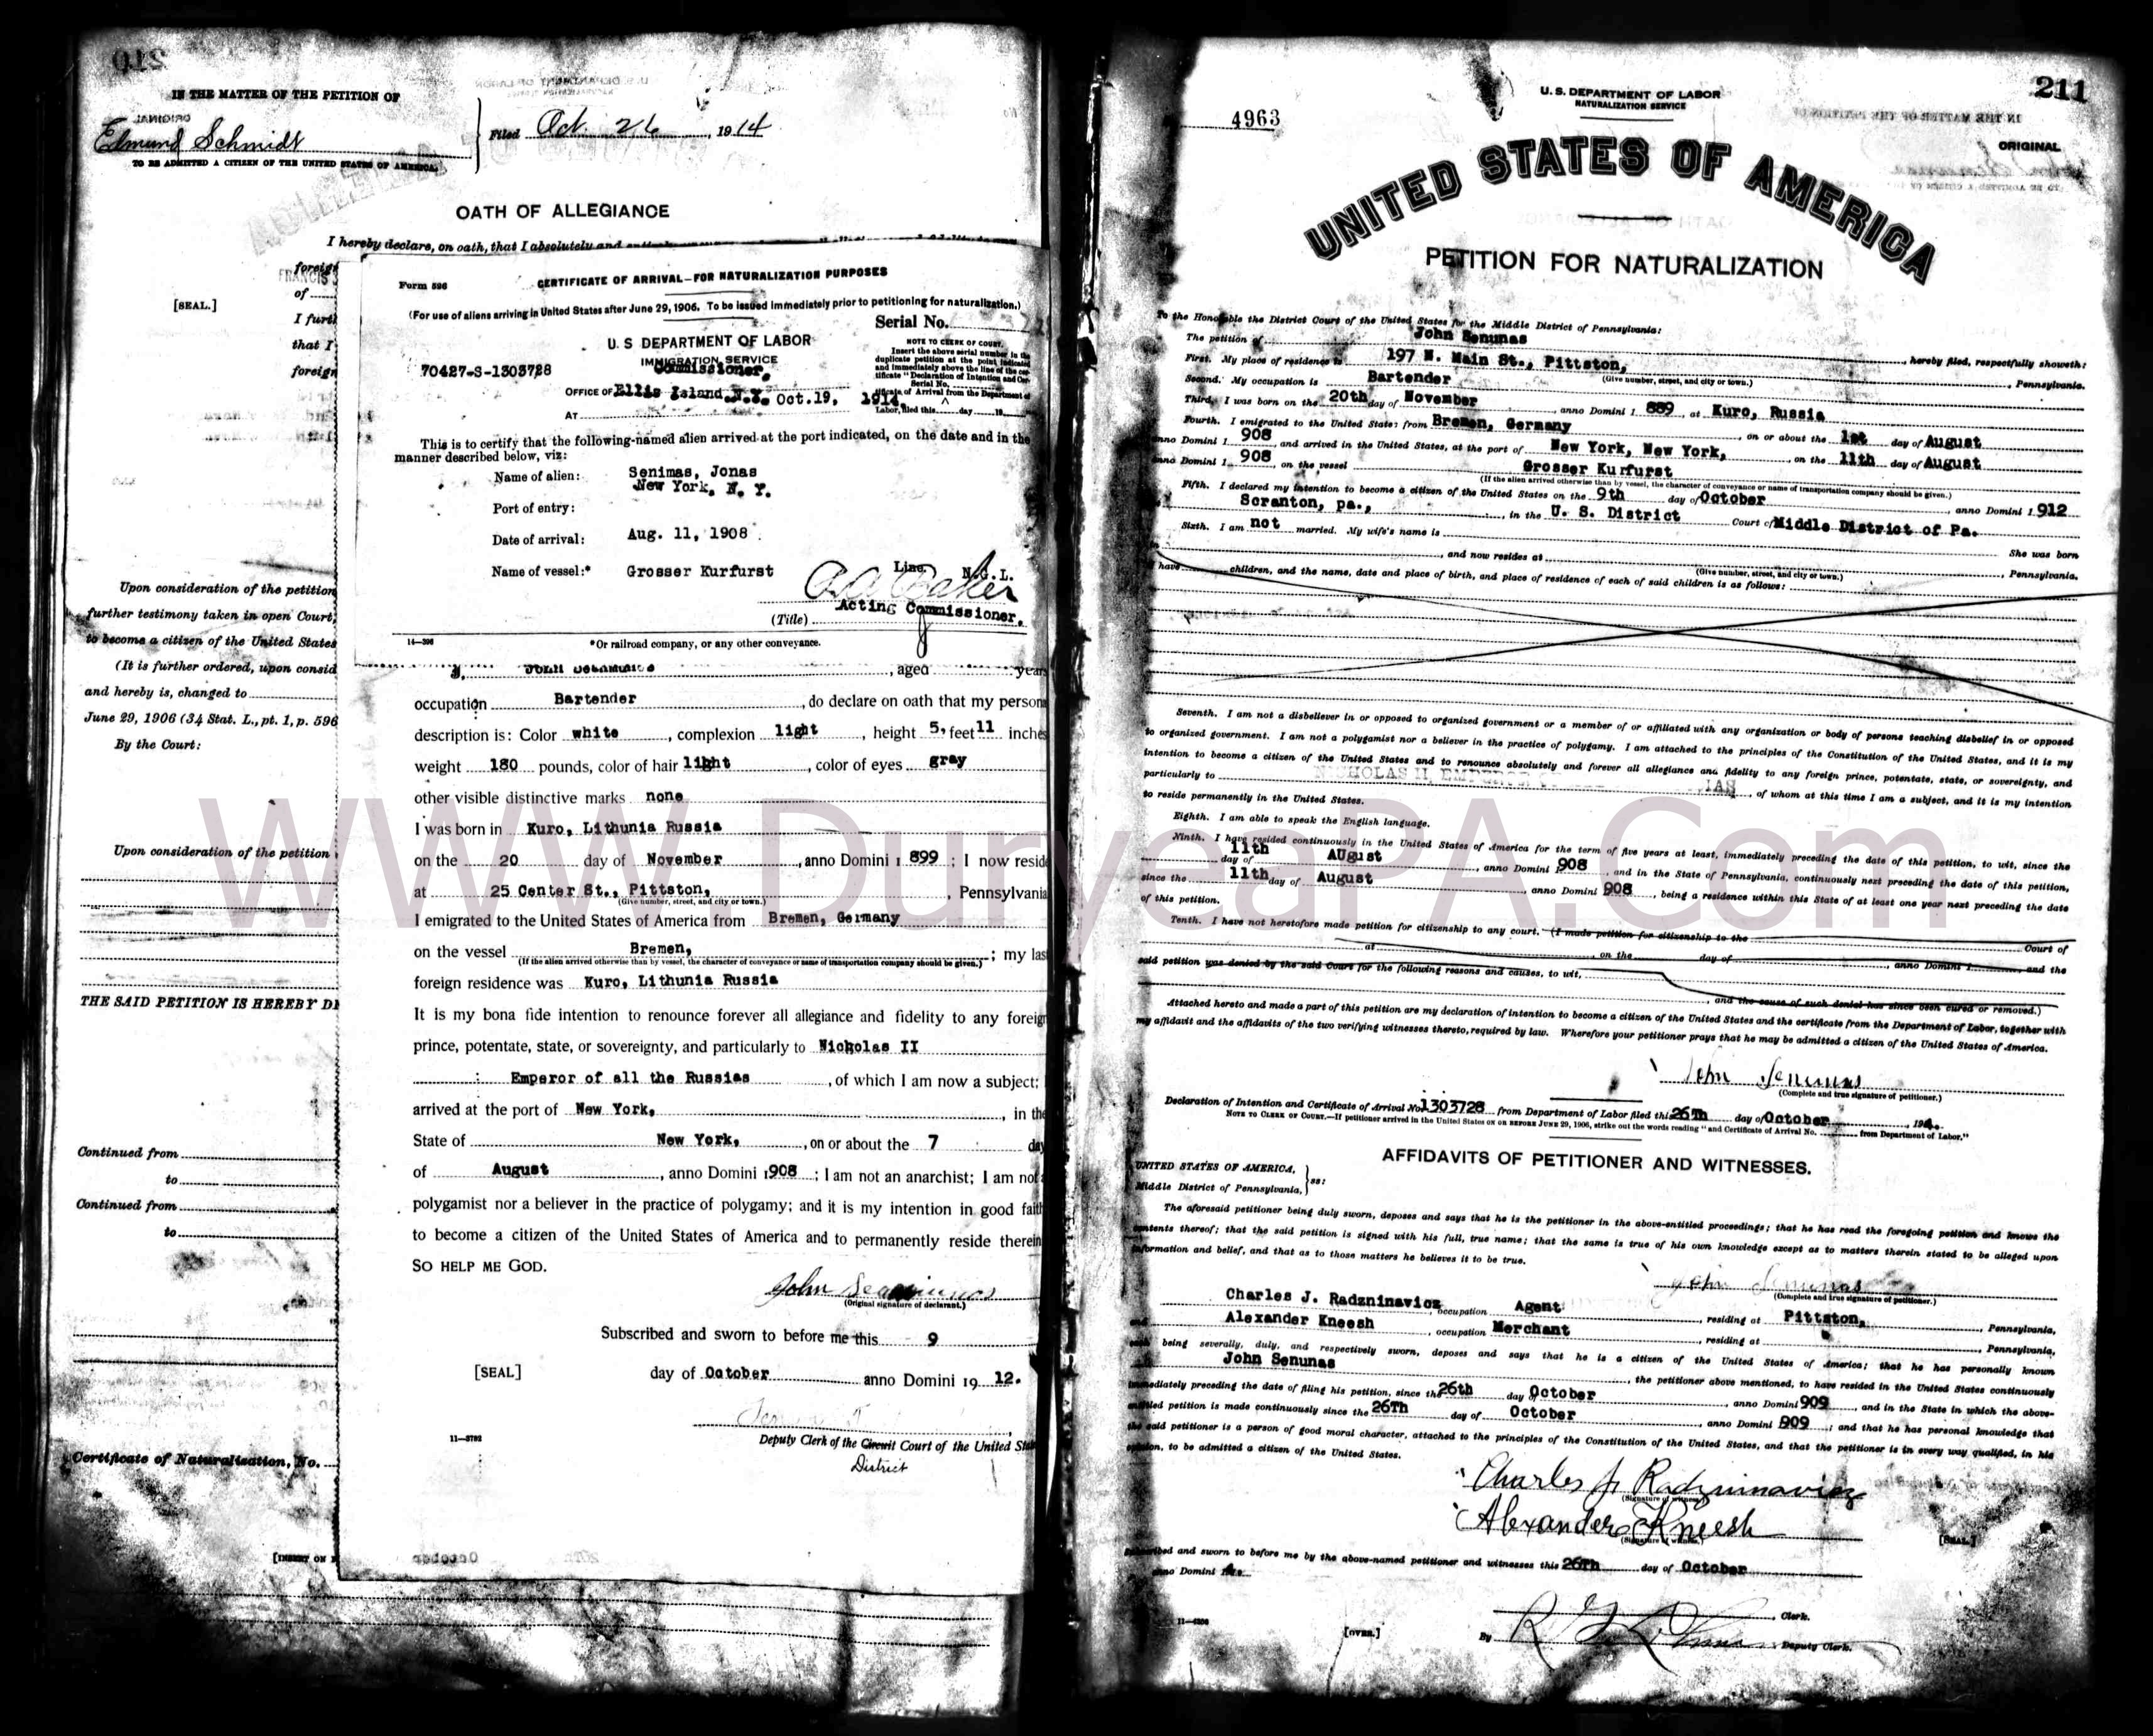 210
IN THE MATTER OF THE PETITION OF
ORIGINAL
Edmund Schmidt
TO BE ADMITTED A CITIZEN OF THE UNITED STATES OF AMERICA.
Filed Oct. 26, 1914
OATH OF ALLEGIANCE
I hereby declare, on oath, that I absolutely and
foreign
FRANCIS
of
[SEAL.]
I furt
that I
foreign
Upon consideration of the petition
further testimony taken in open Court,
to become a citizen of the United States
(It is further ordered, upon consid
and hereby is, changed to
June 29, 1906 (34 Stat. L., pt. 1, p. 596
By the Court:
Upon consideration of the petition
THE SAID PETITION IS HEREBY DE
Continued from
to
Continued from
to
Certificate of Naturalization, No.
[INSERT ON
Form 526
CERTIFICATE OF ARRIVAL—FOR NATURALIZATION PURPOSES
(For use of aliens arriving in United States after June 29, 1906. To be issued immediately prior to petitioning for naturalization.)
Serial No.
U. S DEPARTMENT OF LABOR
IMMIGRATION SERVICE
70427-S-1303728
Commissioner,
OFFICE OF Ellis Island, N.Y. Oct.19, 1914.
AT
NOTE TO CLERK OF COURT.
Insert the above serial number in the
duplicate petition at the point indicated
and immediately above the line of the cer-
tificate "Declaration of Intention and Cer-
Serial No.
tificate of Arrival from the Department of
Labor, filed this day 19
This is to certify that the following-named alien arrived at the port indicated, on the date and in the
manner described below, viz:
Name of alien: Senimas, Jonas
New York, N. Y.
Port of entry:
Date of arrival: Aug. 11, 1908
Name of vessel:* Grosser Kurfurst Line, N.G.L.
Acting Commissioner,
(Title)
*Or railroad company, or any other conveyance.
I, John , aged years
occupation Bartender , do declare on oath that my person
description is: Color white , complexion light , height 5, feet 11 inches
weight 180 pounds, color of hair light , color of eyes gray
other visible distinctive marks none
I was born in Kuro, Lithunia Russia
on the 20 day of November , anno Domini 1 899 ; I now resid
at 25 Center St., Pittston, , Pennsylvania
(Give number, street, and city or town.)
I emigrated to the United States of America from Bremen, Germany
on the vessel Bremen, ; my las
(If the alien arrived otherwise than by vessel, the character of conveyance or name of transportation company should be given.)
foreign residence was Kuro, Lithunia Russia
It is my bona fide intention to renounce forever all allegiance and fidelity to any foreign
prince, potentate, state, or sovereignty, and particularly to Nicholas II
Emperor of all the Russias , of which I am now a subject;
arrived at the port of New York, , in the
State of New York, , on or about the 7 day
of August , anno Domini 1908 ; I am not an anarchist; I am not
polygamist nor a believer in the practice of polygamy; and it is my intention in good faith
to become a citizen of the United States of America and to permanently reside therein
SO HELP ME GOD.
John
(Original signature of declarant.)
Subscribed and sworn to before me this 9
[SEAL] day of October anno Domini 19 12.
11—3782
Deputy Clerk of the Circuit Court of the United Sta
District
October
211
U. S. DEPARTMENT OF LABOR
NATURALIZATION SERVICE
4963
ORIGINAL
UNITED STATES OF AMERICA
PETITION FOR NATURALIZATION
To the Honorable the District Court of the United States for the Middle District of Pennsylvania:
The petition of John Senunas , hereby filed, respectfully showeth:
First. My place of residence is 197 N. Main St., Pittston, , Pennsylvania.
(Give number, street, and city or town.)
Second. My occupation is Bartender
Third. I was born on the 20th day of November , anno Domini 1 889 , at Kuro, Russia
Fourth. I emigrated to the United States from Bremen, Germany , on or about the 1st day of August
anno Domini 1 908 , and arrived in the United States, at the port of New York, New York, , on the 11th day of August
anno Domini 1 908 , on the vessel Grosser Kurfurst
(If the alien arrived otherwise than by vessel, the character of conveyance or name of transportation company should be given.)
Fifth. I declared my intention to become a citizen of the United States on the 9th day of October , anno Domini 1 912
Scranton, pa., , in the U. S. District Court of Middle District of Pa.
Sixth. I am not married. My wife's name is She was born
in , and now resides at , Pennsylvania.
(Give number, street, and city or town.)
I have children, and the name, date and place of birth, and place of residence of each of said children is as follows:
Seventh. I am not a disbeliever in or opposed to organized government or a member of or affiliated with any organization or body of persons teaching disbelief in or opposed
to organized government. I am not a polygamist nor a believer in the practice of polygamy. I am attached to the principles of the Constitution of the United States, and it is my
intention to become a citizen of the United States and to renounce absolutely and forever all allegiance and fidelity to any foreign prince, potentate, state, or sovereignty, and
particularly to NICHOLAS II, EMPEROR , of whom at this time I am a subject, and it is my intention
to reside permanently in the United States.
Eighth. I am able to speak the English language.
Ninth. I have resided continuously in the United States of America for the term of five years at least, immediately preceding the date of this petition, to wit, since the
11th day of AUgust , anno Domini 908 , and in the State of Pennsylvania, continuously next preceding the date of this petition,
since the 11th day of August , anno Domini 908 , being a residence within this State of at least one year next preceding the date
of this petition.
Tenth. I have not heretofore made petition for citizenship to any court. (I made petition for citizenship to the Court of
at , on the day of , anno Domini 1 and the
said petition was denied by the said Court for the following reasons and causes, to wit,
, and the cause of such denial has since been cured or removed.)
Attached hereto and made a part of this petition are my declaration of intention to become a citizen of the United States and the certificate from the Department of Labor, together with
my affidavit and the affidavits of the two verifying witnesses thereto, required by law. Wherefore your petitioner prays that he may be admitted a citizen of the United States of America.
John Senunas
(Complete and true signature of petitioner.)
Declaration of Intention and Certificate of Arrival No. 1303728 from Department of Labor filed this 26Th day of October , 1914.
NOTE TO CLERK OF COURT.—If petitioner arrived in the United States ON OR BEFORE JUNE 29, 1906, strike out the words reading "and Certificate of Arrival No. from Department of Labor."
AFFIDAVITS OF PETITIONER AND WITNESSES.
UNITED STATES OF AMERICA,
Middle District of Pennsylvania, ss:
The aforesaid petitioner being duly sworn, deposes and says that he is the petitioner in the above-entitled proceedings; that he has read the foregoing petition and knows the
contents thereof; that the said petition is signed with his full, true name; that the same is true of his own knowledge except as to matters therein stated to be alleged upon
information and belief, and that as to those matters he believes it to be true.
John Senunas
(Complete and true signature of petitioner.)
Charles J. Radzninavicz , occupation Agent , residing at Pittston, , Pennsylvania,
and Alexander Kneesh , occupation Merchant , residing at , Pennsylvania,
each being severally, duly, and respectively sworn, deposes and says that he is a citizen of the United States of America; that he has personally known
John Senunas , the petitioner above mentioned, to have resided in the United States continuously
immediately preceding the date of filing his petition, since the 26th day of October , anno Domini 909 , and in the State in which the above-
entitled petition is made continuously since the 26Th day of October , anno Domini 909 , and that he has personal knowledge that
the said petitioner is a person of good moral character, attached to the principles of the Constitution of the United States, and that the petitioner is in every way qualified, in his
opinion, to be admitted a citizen of the United States.
Charles J. Radzninavicz
(Signature of witness.)
Alexander Kneesh
(Signature of witness.)
[SEAL.]
Subscribed and sworn to before me by the above-named petitioner and witnesses this 26Th day of October
anno Domini
, Clerk.
[OVER.]
By , Deputy Clerk.
WWW.DuryeaPA.Com